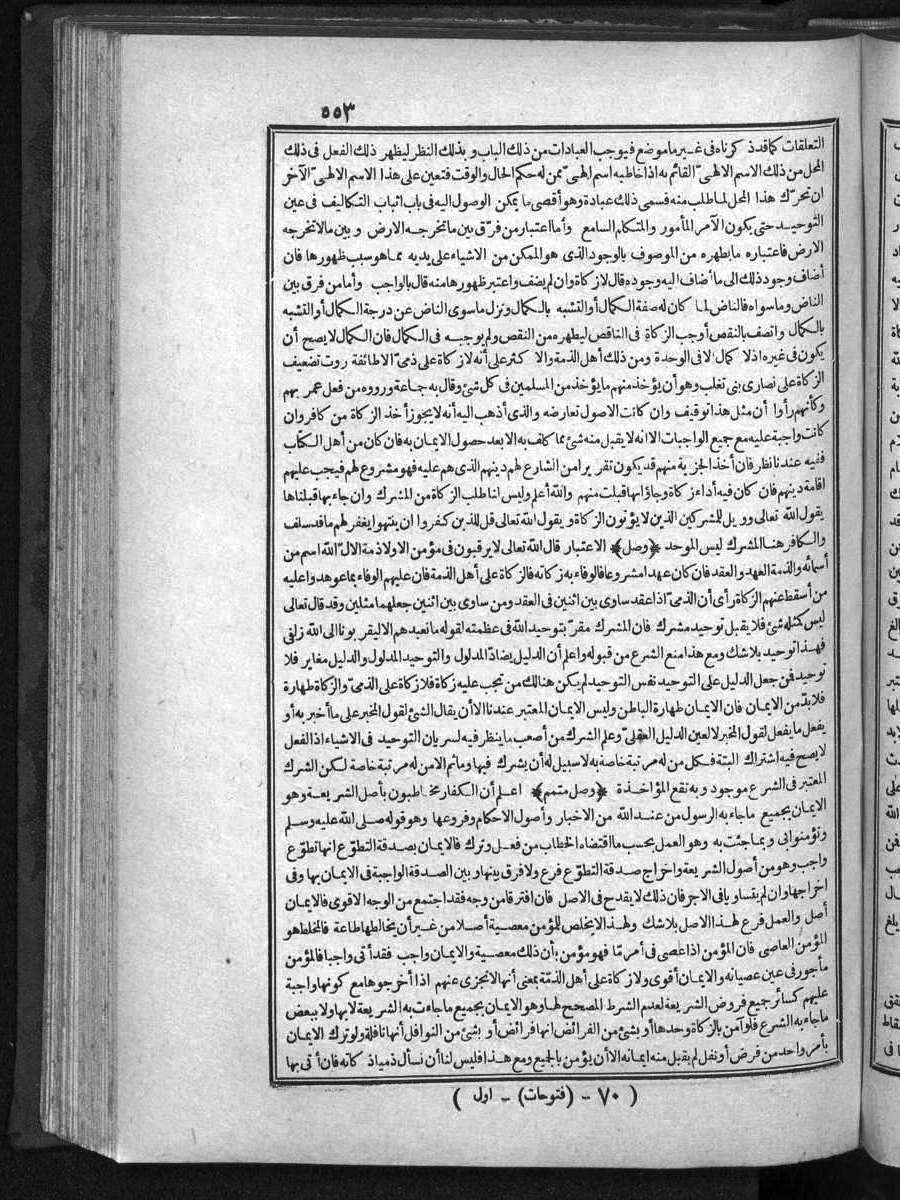 ٥٥٣
التعلقات كما قد ذكرناه فى غير ما موضع فيوجب العبادات من ذلك الباب و بذلك النظر ليظهر ذلك الفعل فى ذلك
المحل من ذلك الاسم الالهىّ القائم به اذا خاطبه اسم الهىّ ممن له حكم الحال والوقت فتعين على هذا الاسم الالهىّ الآخر
ان تحرّك هذا المحل لما طلب منه فسمى ذلك عبادة وهو أقصى ما يمكن الوصول اليه فى باب اثبات التكاليف فى عين
التوحيد حتى يكون الآمر المأمور والمتكلم السامع وأما اعتبار من فرّق بين ما تخرجه الارض و بين مالا تخرجه
الارض فاعتباره ما يظهره من الموصوف بالوجود الذى هو الممكن من الاشياء على يديه مما هو سبب ظهورها فان
أضاف وجود ذلك الى ما أضاف اليه وجوده قال لازكاة وان لم يضف واعتبر ظهورها منه قال بالواجب وأما من فرق بين
الناض وما سواه فالناض لما كان له صفة الكمال أو التشبه بالكمال ونزل ما سوى الناض عن درجة الكمال أو التشبه
بالكمال واتصف بالنقص أوجب الزكاة فى الناقص ليطهره من النقص ولم يوجبه فى الكمال فان الكمال لا يصح أن
يكون فى غيره اذلا كمال الا فى الوحدة ومن ذلك أهل الذمة والا كثر على أنه لازكاة على ذمىّ الا طائفة روت تضعيف
الزكاة على نصارى بنى تغلب وهو أن يؤخذ منهم ما يؤخذ من المسلمين فى كل شئ وقال به جماعة ورووه من فعل عمر بهم
وكأنهم رأوا أن مثل هذا توقيف وان كانت الاصول تعارضه والذى أذهب اليه أنه لا يجوز أخذ الزكاة من كافر وان
كانت واجبة عليه مع جميع الواجبات الا انه لا يقبل منه شئ مما كلف به الا بعد حصول الايمان به فان كان من أهل الكتاب
ففيه عندنا نظر فان أخذ الجزية منهم قد يكون تقريرا من الشارع لهم دينهم الذى هم عليه فهو مشروع لهم فيجب عليهم
اقامة دينهم فان كان فيه أداء زكاة وجاؤا بها قبلت منهم والله أعلم وليس لنا طلب الزكاة من المشرك وان جاء بها قبلناها
يقول الله تعالى وويل للمشركين الذين لا يؤتون الزكاة و يقول الله تعالى قل للذين كفروا ان ينتهوا يغفر لهم ما قد سلف
والكافر هنا المشرك ليس الموحد ﴿وصل﴾ الاعتبار قال الله تعالى لا يرقبون فى مؤمن الا ولا ذمة الالّ الله اسم من
أسمائه والذمة العهد والعقد فان كان عهدا مشروعا فالوفاء به زكاته فالزكاة على أهل الذمة فان عليهم الوفاء بما عوهدوا عليه
من أسقط عنهم الزكاة رأى أن الذمىّ اذا عقد ساوى بين اثنين فى العقد ومن ساوى بين اثنين جعلهما مثلين وقد قال تعالى
ليس كمثله شئ فلا يقبل توحيد مشرك فان المشرك مقرّ بتوحيد الله فى عظمته لقوله ما نعبدهم الا ليقر بونا الى الله زلفى
فهذا توحيد بلاشك ومع هذا منع الشرع من قبوله واعلم أن الدليل يضادّ المدلول والتوحيد المدلول والدليل مغاير فلا
توحيد فمن جعل الدليل على التوحيد نفس التوحيد لم يكن هنالك من تجب عليه زكاة فلا زكاة على الذمىّ والزكاة طهارة
فلا بدّ من الايمان فان الايمان طهارة الباطن وليس الايمان المعتبر عندنا الا أن يقال الشئ لقول المخبر على ما أخبر به أو
يفعل ما يفعل لقول المخبر لا لعين الدليل العقلىّ وعلم الشرك من أصعب ما ينظر فيه لسريان التوحيد فى الاشياء اذ الفعل
لا يصح فيه اشتراك البتة فكل من له مرتبة خاصة به لا سبيل له أن يشرك فيها وما ثم الا من له مرتبة خاصة لكن الشرك
المعتبر فى الشرع موجود و به تقع المؤاخذة ﴿وصل متمم﴾ اعلم أن الكفار مخاطبون بأصل الشريعة وهو
الايمان بجميع ماجاء به الرسول من عند الله من الاخبار وأصول الاحكام وفروعها وهو قوله صلى الله عليه وسلم
وتؤمنوا بى وبما جئت به وهو العمل بحسب ما اقتضاه الخطاب من فعل وترك فالايمان بصدقة التطوّع انها تطوّع
واجب وهو من أصول الشريعة واخراج صدقة التطوّع فرع ولا فرق بينها و بين الصدقة الواجبة فى الايمان بها وفى
اخراجها وان لم يتساويا فى الاجر فان ذلك لا يقدح فى الاصل فان افترقا من وجه فقد اجتمع من الوجه الاقوى فالايمان
أصل والعمل فرع لهذا الاصل بلاشك ولهذا لا يخلص للمؤمن معصية أصلا من غير أن يخالطها طاعة فالمخلط هو
المؤمن العاصى فان المؤمن اذا عصى فى أمر مّا فهو مؤمن بأن ذلك معصية والايمان واجب فقد أتى واجبا فالمؤمن
مأجور فى عين عصيانه والايمان أقوى ولا زكاة على أهل الذمّة بمعنى أنها لا تجزى عنهم اذا أخرجوها مع كونها واجبة
عليهم كسائر جميع فروض الشريعة لعدم الشرط المصحح لها وهو الايمان بجميع ماجاءت به الشريعة لا بها ولا ببعض
ماجاء به الشرع فلو آمن بالزكاة وحدها أو بشئ من الفرائض انها فرائض أو بشئ من النوافل أنها نافلة ولو ترك الايمان
بأمر واحد من فرض أو نفل لم يقبل منه ايمانه الا أن يؤمن بالجميع ومع هذا فليس لنا أن نسأل ذميا زكاته فان أتى بها
( ٧٠ - (فتوحات) - اول )